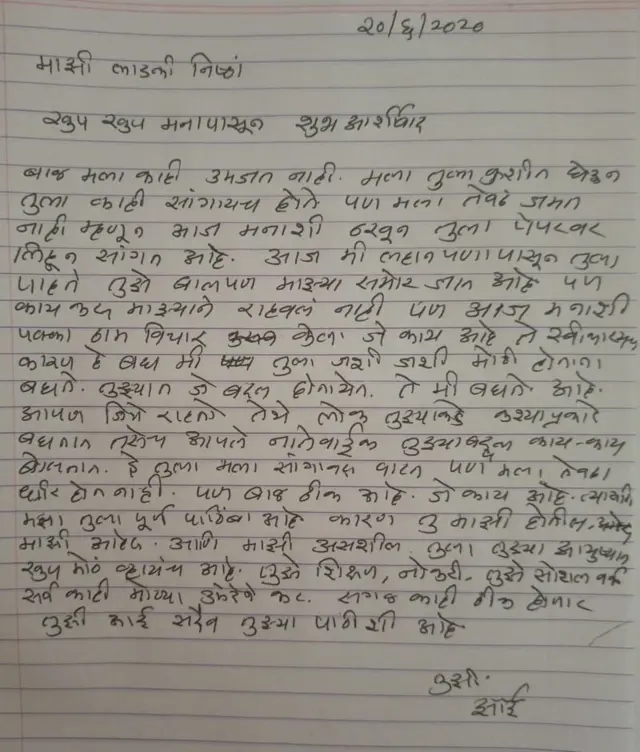 २०/६/२०२०
माझी लाडकी निष्ठां
खुप खुप मनापासून शुभ आर्शिवाद
बाळ मला काही उमजत नाही. मला तुला कुशीत घेऊन
तुला काही सांगायच होते पण मला तेवढं जमत
नाही म्हणून आज मनाशी ठरवून तुला पेपरवर
लिहून सांगत आहे. आज मी लहानपणापासून तुला
पाहते तुझे बालपण माझ्या समोर जात आहे पण
काय करू माझ्याने राहवलं नाही पण आज मनाशी
पक्का ठाम विचार केला जे काय आहे ते स्वीकारायच
कारण हे बघ मी तुला जशी जशी मोठी होताना
बघते. तुझ्यात जे बदल होतायेत. ते मी बघते आहे.
आपण जिथे राहतो तेथे लोक तुझ्याकडे कश्याप्रकारे
बघतात तसेच आपले नातेवाईक तुझ्याबद्दल काय-काय
बोलतात. हे तुला मला सांगावस वाटत पण मला तेवढा
धीर होत नाही. पण बाळ ठीक आहे. जे काय आहे. त्यासाठी
मझा तुला पूर्ण पाठिंबा आहे कारण तु माझी होतीस
माझी आहेस. आणि माझी असशील. तुला तुझ्या आयुष्यात
खुप मोठं व्हायचं आहे. तुझे शिक्षण, नोकरी. तुझे सोशल वर्क
सर्व काही मोठ्या उमेदीने कर. सगळ काही ठीक होणार
तुझी आई सदैव तुझ्या पाठीशी आहे
तुझी.
आई